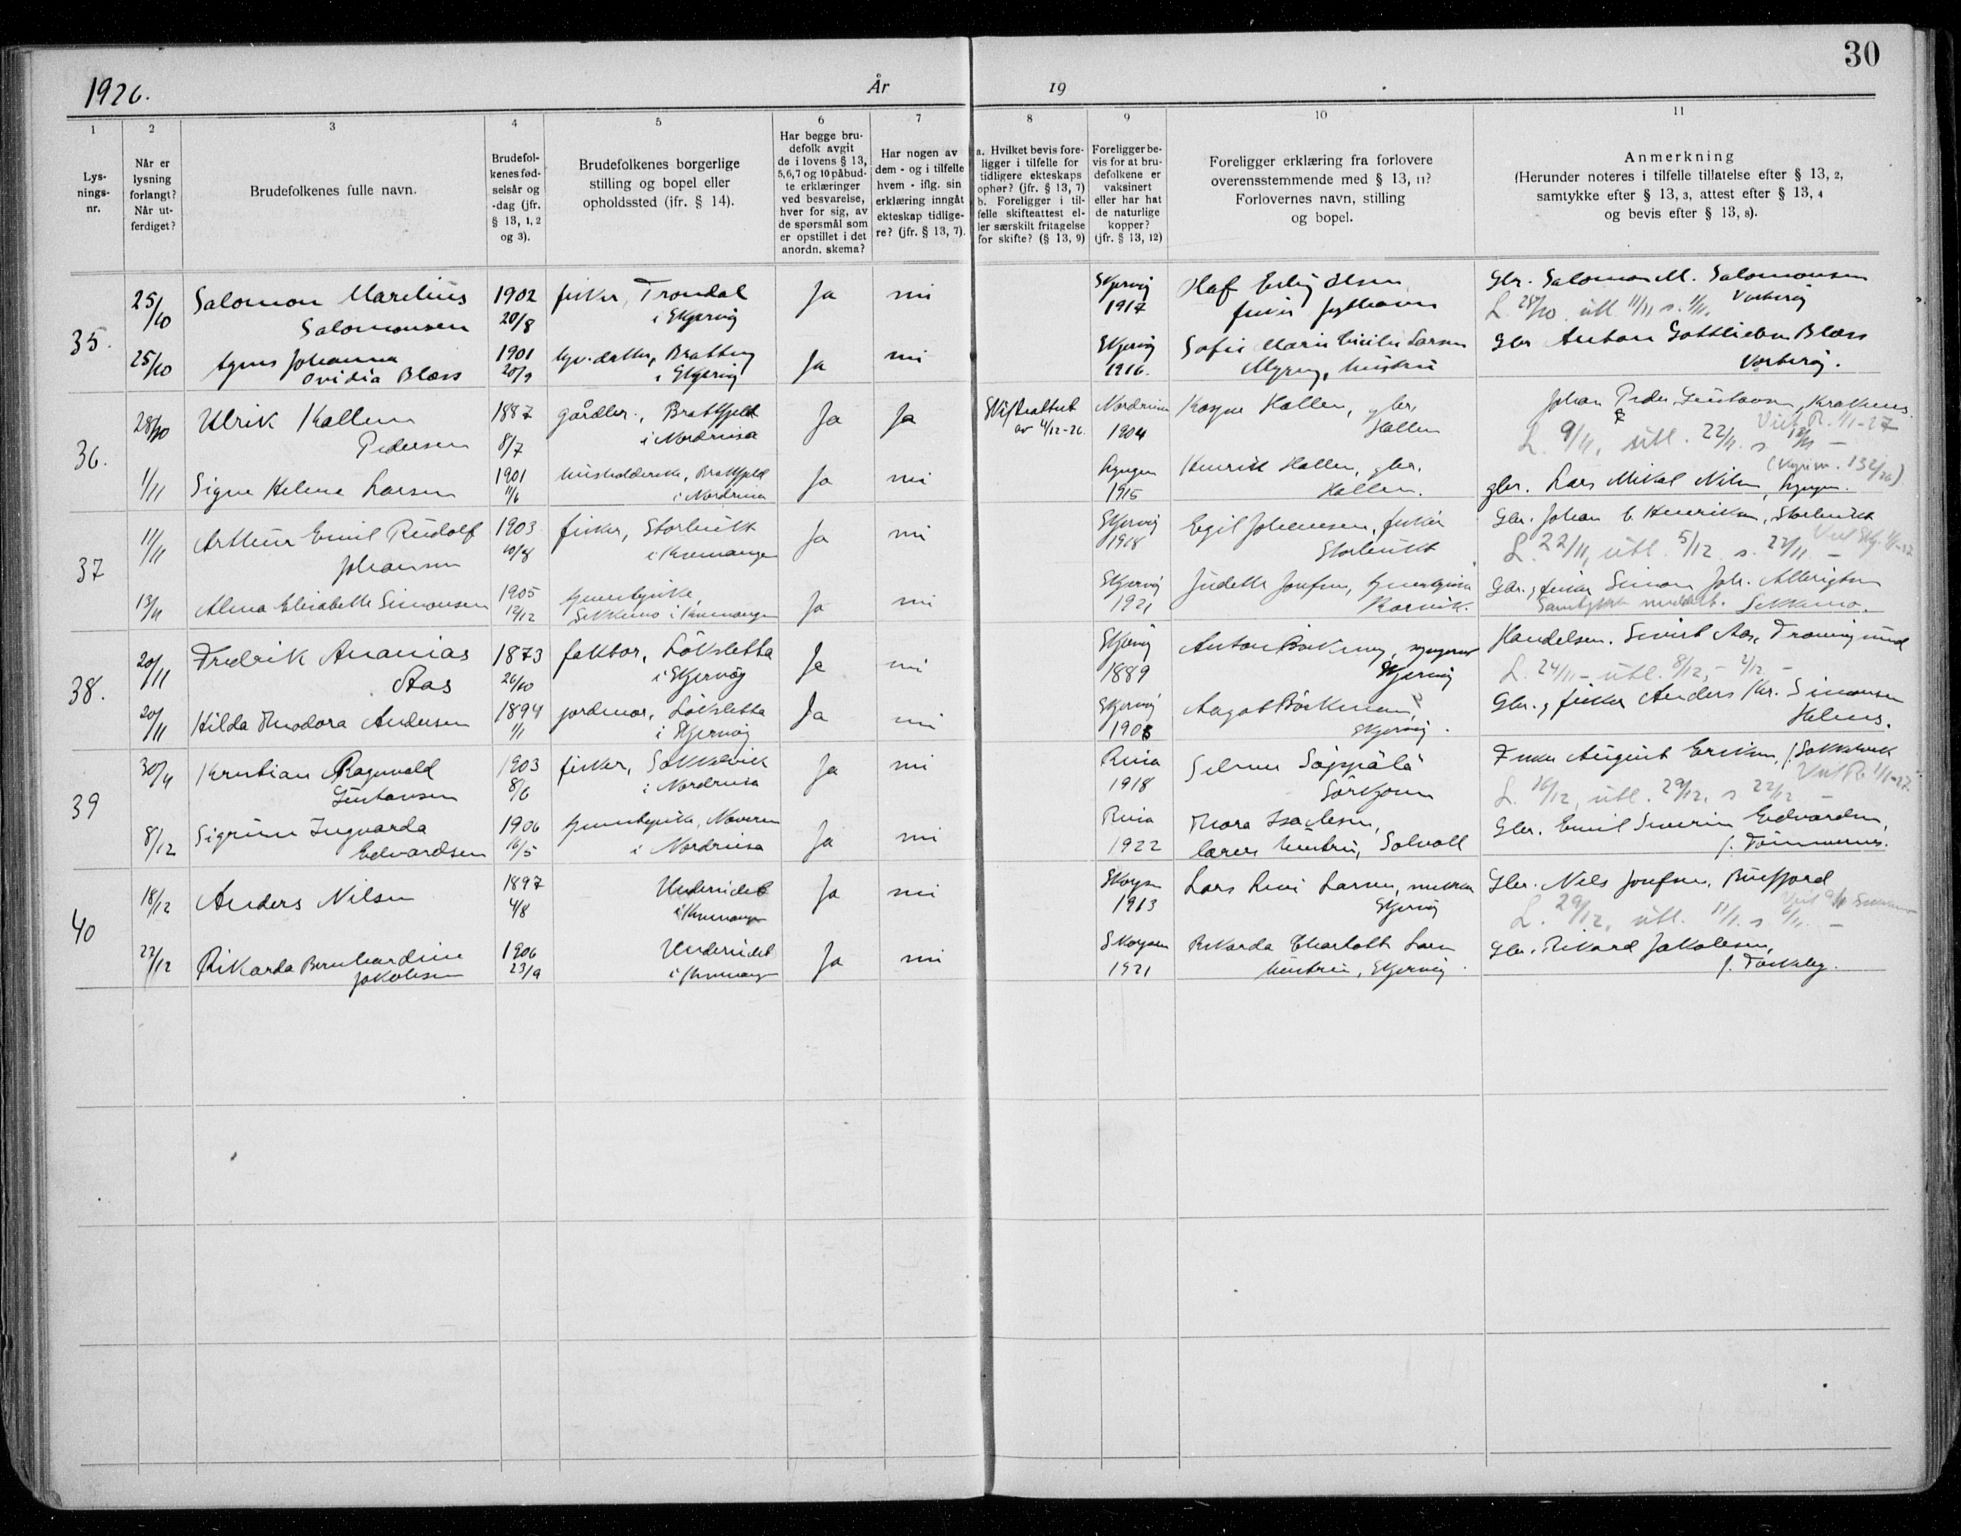 30
1926. År 19
1 2 3 4 5 6 7 8 9 10 11
Lysningsnr.
Når er lysning forlangt? Når utferdiget?
Brudefolkenes fulle navn.
Brudefolkenes fødselsår og -dag (jfr. § 13, 1, 2 og 3).
Brudefolkenes borgerlige stilling og bopel eller opholdssted (jfr. § 14).
Har begge brudefolk avgit de i lovens § 13, 5,6,7 og 10 påbudte erklæringer ved besvarelse, hver for sig, av de spørsmål som er opstillet i det anordn. skema?
Har nogen av dem - og i tilfelle hvem - iflg. sin erklæring inngåt ekteskap tidligere? (jfr. § 13, 7).
a. Hvilket bevis foreligger i tilfelle for tidligere ekteskaps ophør? (jfr. § 13, 7) b. Foreligger i tilfelle skifteattest eller særskilt fritagelse for skifte? (§ 13, 9)
Foreligger bevis for at brudefolkene er vaksinert eller har hat de naturlige kopper? (jfr. § 13, 12)
Foreligger erklæring fra forlovere overensstemmende med § 13, 11? Forlovernes navn, stilling og bopel.
Anmerkning (Herunder noteres i tilfelle tillatelse efter § 13, 2, samtykke efter § 13, 3, attest efter § 13, 4 og bevis efter § 13, 8).
35.
25/10 Salomon Marelius 1902 fisker, Trondal Ja nei Skjervøy Olaf Erling Olsen Gbr. Salomon M. Salomonsen
Salomonsen 20/8 i Skjervøy 1917 fisker L. 28/10 utl. 11/11 s. 1/11. Vorterøy
25/10 Agnes Johanna 1901 Bratteng Ja nei Skjervøy Sofie Marie Larsen Gbr Anton Gottlieben Blæss
Ovidia Blæss 20/9 i Skjervøy 1916. hustru Vorterøy.
36.
28/10 Ulrik Kallem 1887 gårdbr., Brattfjeld Ja Ja Skifteattest Nordreisa Hallen, gbr. Johan Peder Gustavsen,
Pedersen 8/7 i Nordreisa av 4/12-26. 1904 Hallen L. 9/11, utl. 22/11 s
1/11 Signe Helene Larsen 1901 husholderske, Brattfjeld Ja nei Lyngen Henrik Hallen, gbr. gbr. Lars Mikal Nilsen, Lyngen.
11/6 i Nordreisa 1915 Hallen.
37
11/11 Arthur Emil Rudolf 1903 fisker, Storbukt Ja nei Skjervøy Egil Johansen, fisker Gbr. Johan C Henriksen, Storbukt
Johansen 10/8 i Kvænangen 1918 Storbukt L. 22/11, utl. 5/12 s. 22/11 –
13/11 Alma Elisabeth Simonsen 1905 tjenestepike, Ja nei Skjervøy Gbr., fisker Simon Joh. Albrigtsen
12/12 Sekkemo i Kvænangen 1921 Samtykke meddelt. Sekkemo.
38.
20/11 Fredrik Ananias 1873 faktor, Løksletta Ja nei Skjervøy Anton Handelsm. Sivert Aas,
Aas 26/10 i Skjervøy 1889 Skjervøy L. 24/11 – utl. 8/12, – 2/12 –
20/11 Hilda Theodora Andersen 1894 jordmor, Løksletta Ja nei Skjervøy Aagot Gbr., fisker Anders Kr. Simonsen
1/1 i Skjervøy 1908 Skjervøy. Helnes.
39
30/11 Kristian Ragnvald 1903 fisker, Sokkelvik Ja nei Reisa Selmer Seppälä Fisker August Eriksen, f. Sokkelvik
Gustavsen 8/6 i Nordreisa 1918 Sørkjosen L. 16/12, utl. 29/12, s 22/12
8/12 Sigrun Ingvarda 1906 tjenestepike, Ja nei Reisa Thora Isaksen, Gbr. Emil Severin Edvardsen,
Edvardsen 16/5 i Nordreisa 1922 lærers hustru, Solvoll f. Tømmernes.
40
18/12 Anders Nilsen 1897 Undereidet Ja nei Lars Levi Larsen, Skjervøy Gbr. Nils Josefsen, Burfjord
4/8 i Kvænangen 1913 L. 29/12, utl. 11/1. s 6/1. –
22/12 Rikarda Bernhardine 1906 Undereidet Ja nei Rikarda Charlotte Larsen Gbr. Rikard Jakobsen,
Jakobsen 23/9 i Kvænangen 1921 hustru, Skjervøy.